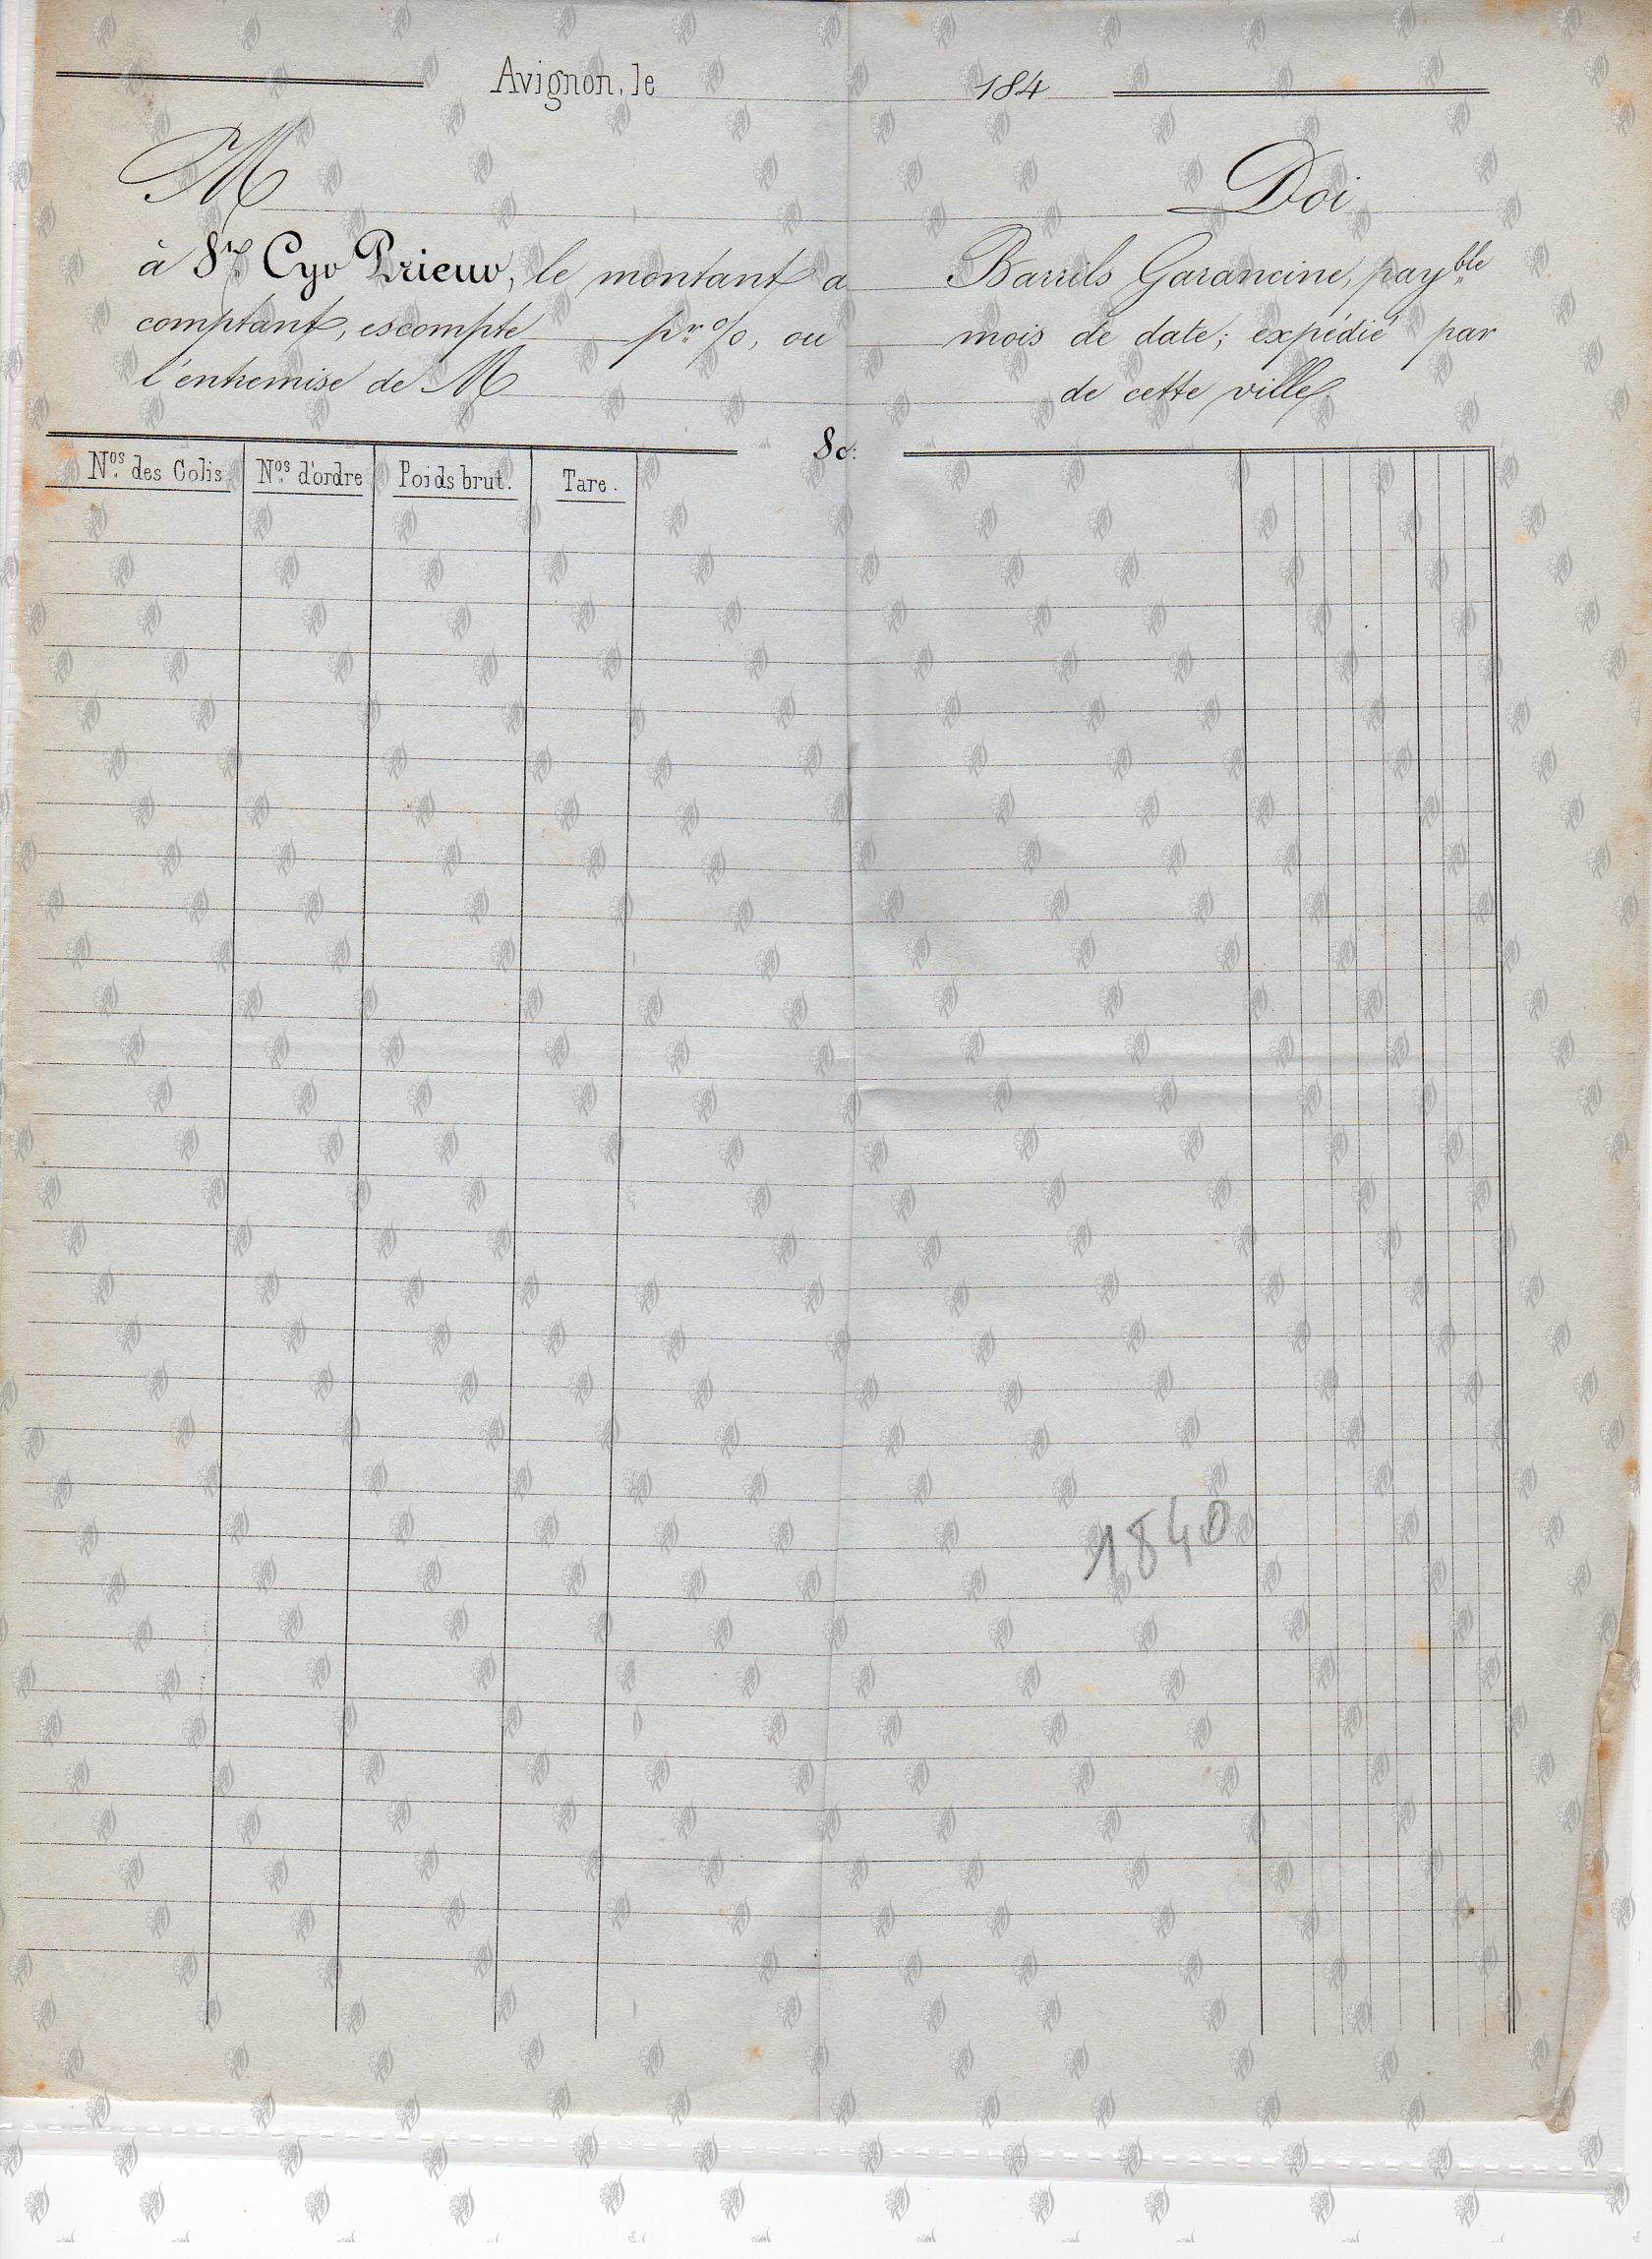 Avignon, le 184
M Doi
à Sr. Cyr Prieur, le montant d Barrils Garancine, payble
comptant, escompte pr %, ou mois de date; expédié par
l'entremise de M de cette ville.
Nos. des Colis Nos. d'ordre Poids brut. Tare.
1840